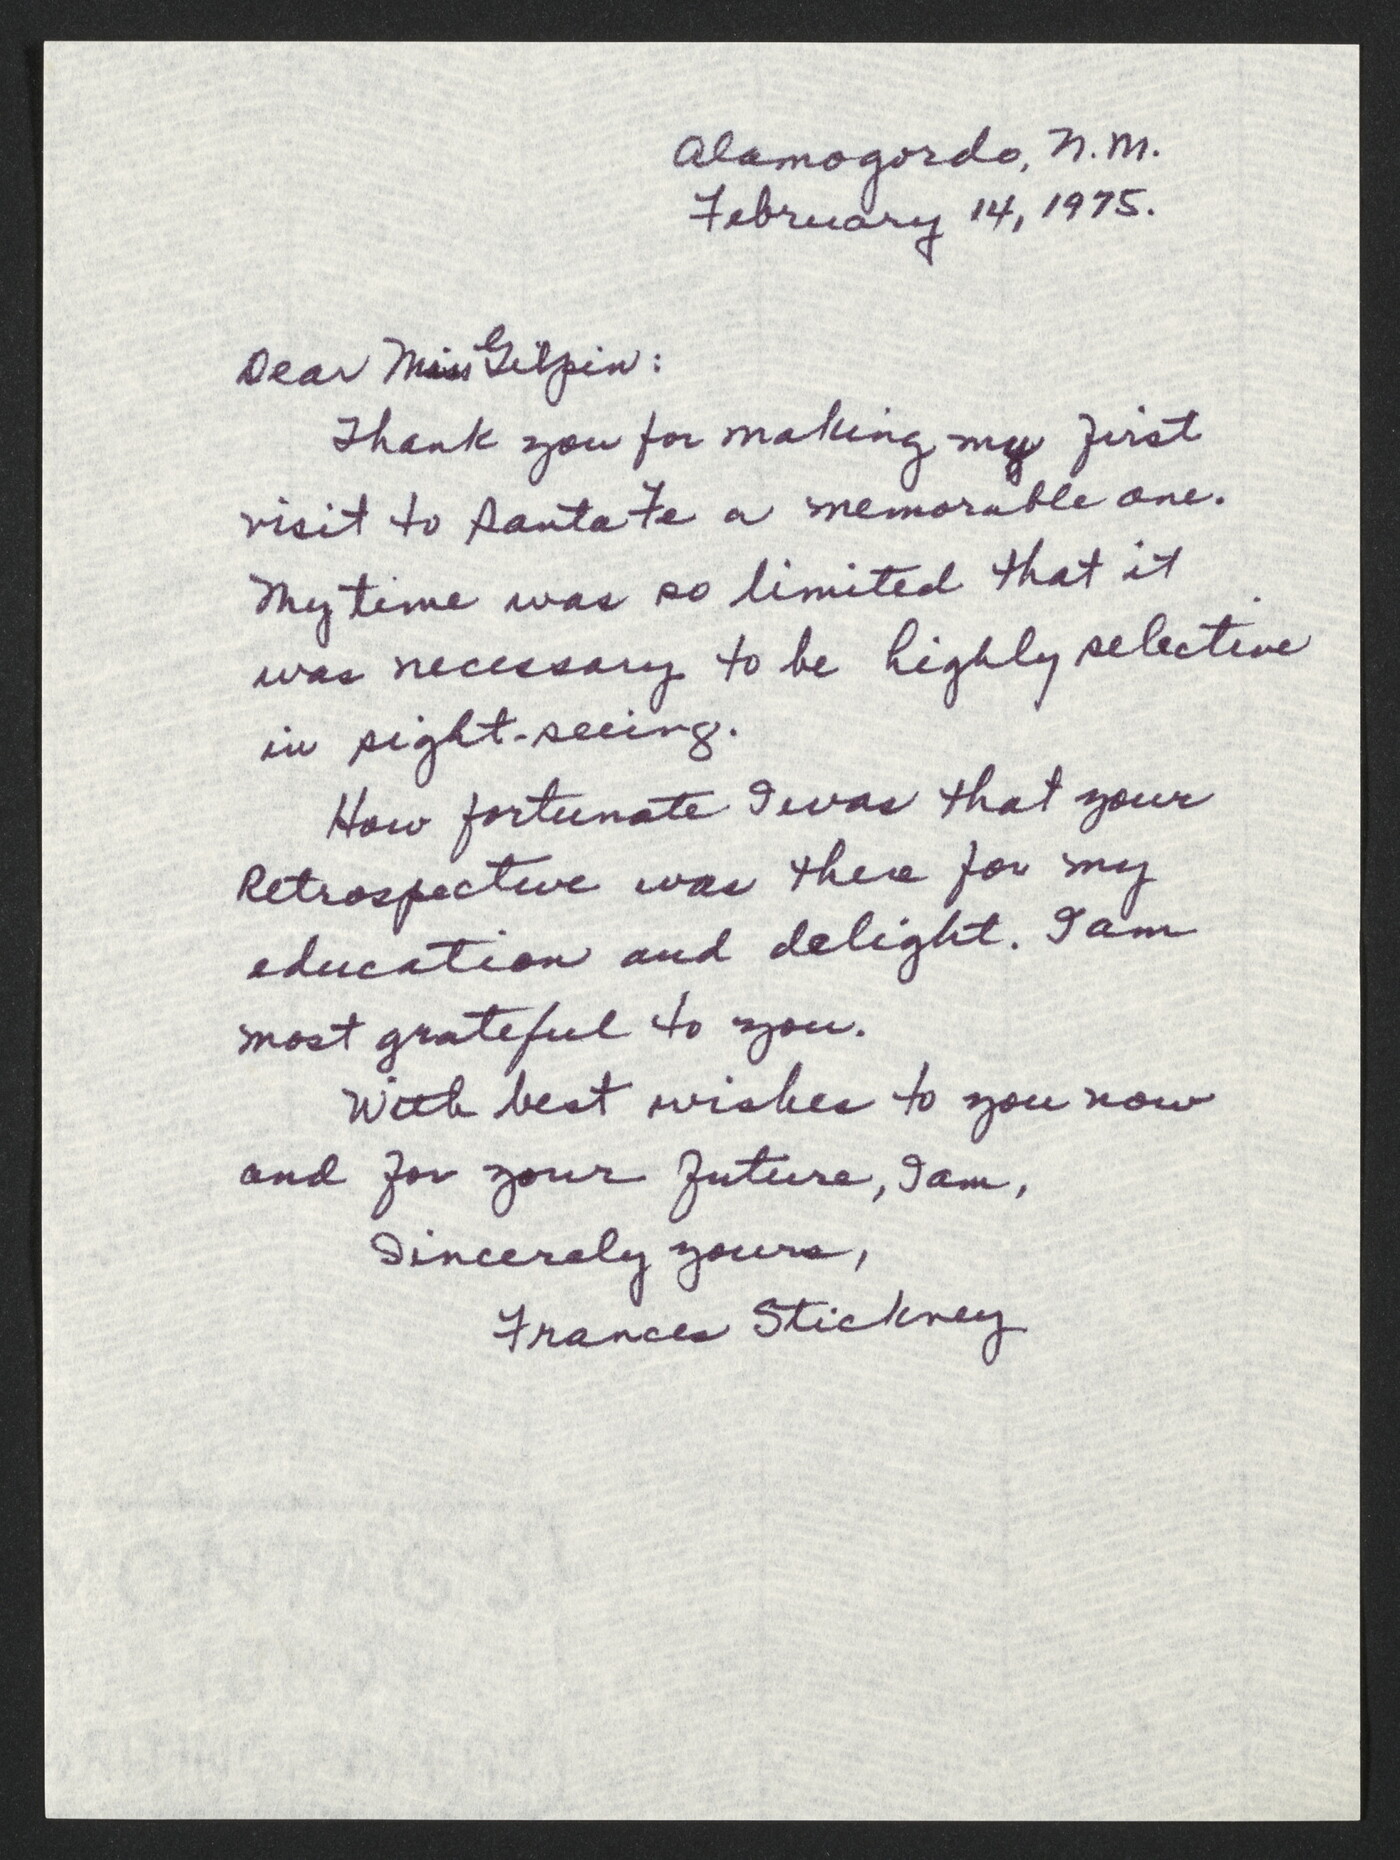 Alamogordo, N.M.
February 14, 1975.
Dear Miss Gilpin:
Thank you for making my first
visit to Santa Fe a memorable one.
My time was so limited that it
was necessary to be highly selective
in sight-seeing.
How fortunate I was that your
Retrospective was there for my
education and delight. I am
most grateful to you.
With best wishes to you now
and for your future, I am,
Sincerely yours,
Frances Stickney
MONTAG'S